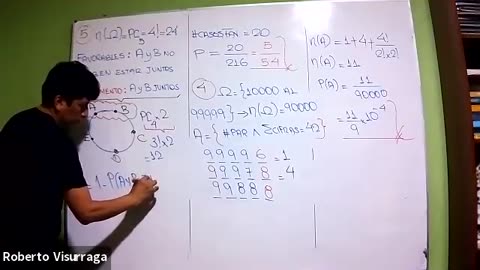 5 n(Ω)=PC5=4!=24
FAVORABLES: A y B NO
EN ESTAR JUNTOS
MENTO: A y B JUNTOS
A B
PC4×2
C
3!×2
=12
D
=1-P(A y B
#CASOS FAV=20
P=20/216=5/54
4 Ω={10000 AL
99999}→n(Ω)=90000
A={#PAR ∧ ΣCIFRAS=42}
99996=1
99978=4
99888
n(A)=1+4+4!/2!×2!
n(A)=11
P(A)=11/90000
=11/9×10⁻⁴
Roberto Visurraga